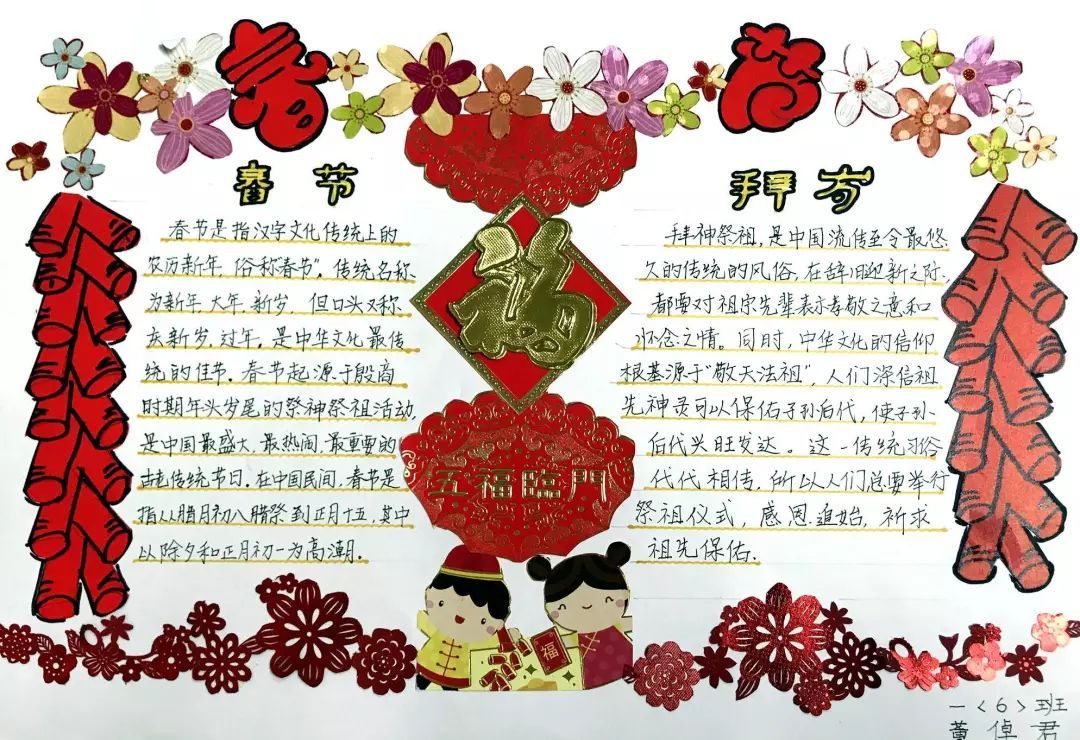 春节
春节
春节是指汉字文化传统上的
农历新年，俗称"春节"。传统名称
为新年、大年、新岁，但口头又称
庆新岁、过年，是中华文化最传
统的佳节。春节起源于殷商
时期年头岁尾的祭神祭祖活动，
是中国最盛大、最热闹、最重要的
古老传统节日。在中国民间，春节是
指从腊月初八腊祭到正月十五，其中
以除夕和正月初一为高潮。
福
五福臨門
福
拜岁
拜神祭祖，是中国流传至今最悠
久的传统的风俗，在辞旧迎新之际，
都要对祖宗先辈表示孝敬之意和
怀念之情。同时，中华文化的信仰
根基源于"敬天法祖"，人们深信祖
先神灵可以保佑子孙后代，使子孙
后代兴旺发达。这一传统习俗
代代相传，所以人们总要举行
祭祖仪式，感恩追始，祈求
祖先保佑．
一〈6〉班
董倬君